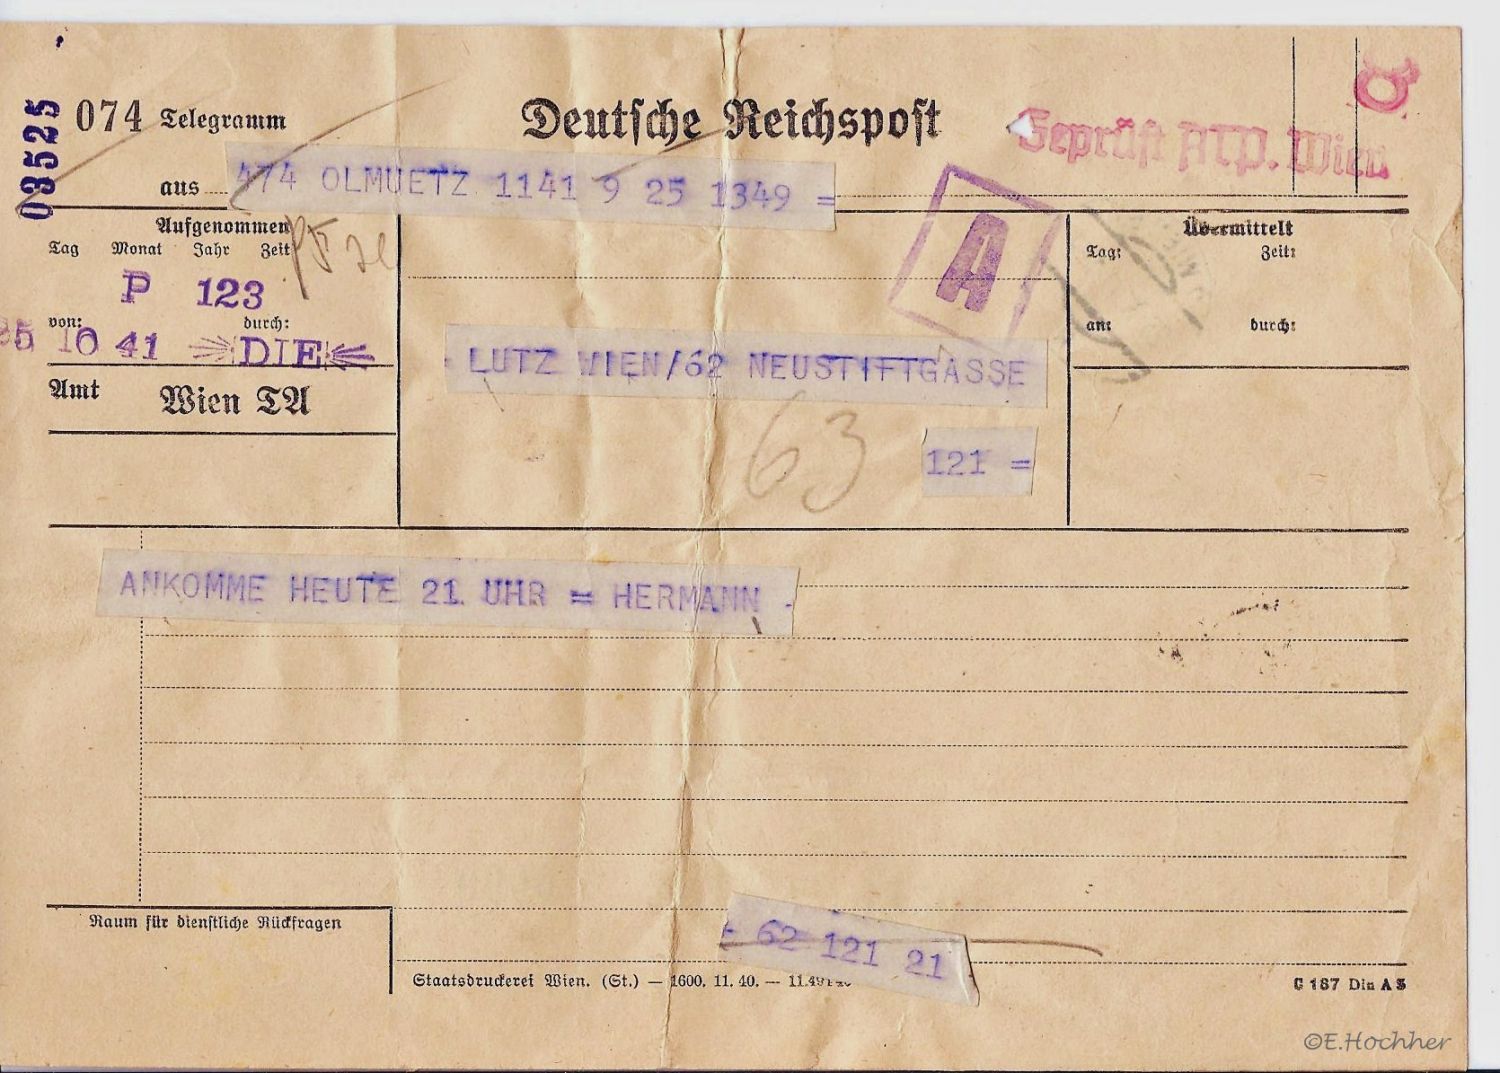 03525
074 Telegramm
Deutsche Reichspost
Geprüft ATP. Wien
aus
474 OLMUETZ 1141 9 25 1349 =
Aufgenommen
Tag Monat Jahr Zeit
P 123
von: durch:
25 10 41 DIE
Amt Wien TA
A
Übermittelt
Tag: Zeit:
an: durch:
LUTZ WIEN/62 NEUSTIFTGASSE
63
121 =
ANKOMME HEUTE 21 UHR = HERMANN
Raum für dienstliche Rückfragen
62 121 21
Staatsdruckerei Wien. (St.) — 1600. 11. 40. —
C 187 Din A 5
©E.Hochher